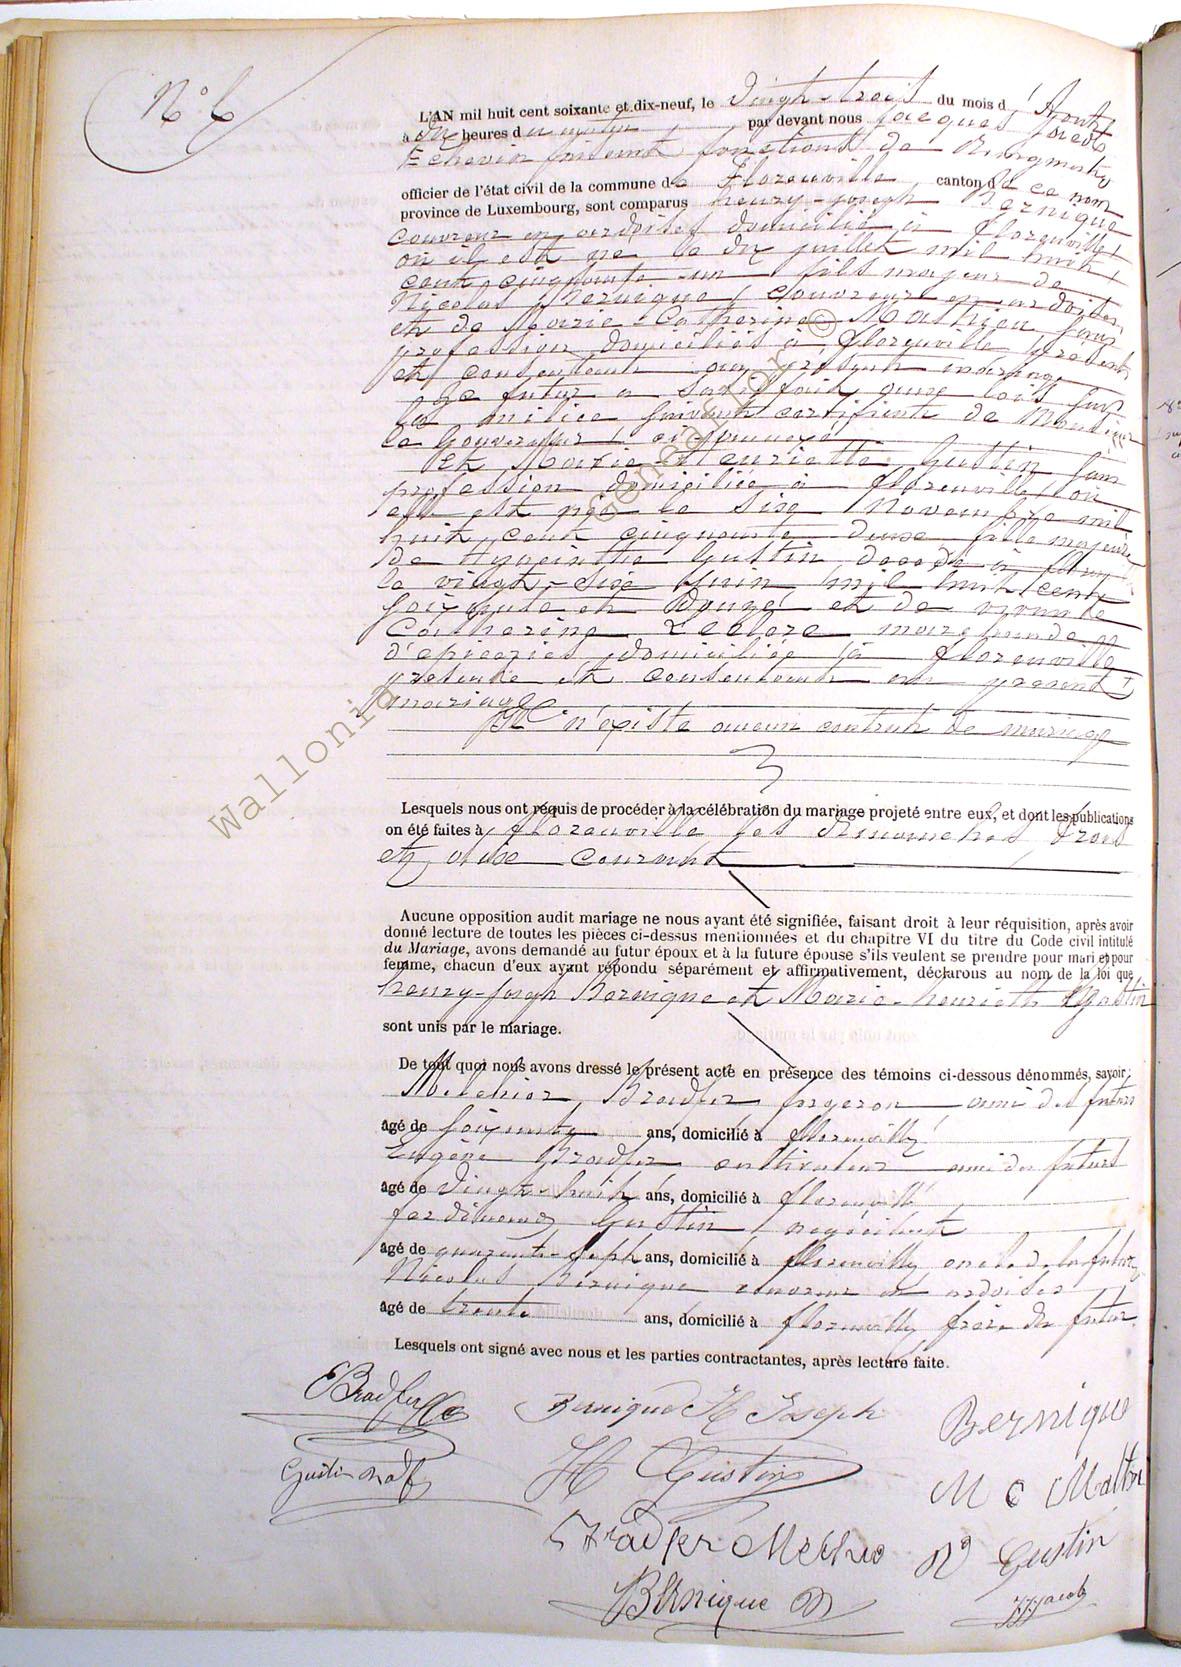 N° 6
L'AN mil huit cent soixante et dix-neuf, le vingt-trois du mois d'Août
à dix heures du matin par devant nous Jacques Jacob
Echevin faisant fonctions de Bourgmestre
officier de l'état civil de la commune de Florenville canton de ce nom
province de Luxembourg, sont comparus henry-joseph Bernique
couvreur en ardoises domicilié à Florenville
où il est né le dix juillet mil huit
cent cinquante-un fils majeur de
Nicolas Bernique, couvreur en ardoises,
et de Marie-Catherine Mathieu sans
profession domiciliés à florenville présents
et consentant au présent mariage
Le futur a satisfait aux lois sur
la milice suivant certificat de Monsieur
le Gouverneur ci-annexé
Et Marie-Henriette Gustin sans
profession domiciliée à florenville où
elle est née le six Novembre mil
huit cent cinquante deux fille majeure
de Hyacinthe Gustin décédé à
le vingt-six juin mil huit cent
soixante et douze et de vivante
Catherine Leclere marchande
d'épiceries domiciliée à florenville
présente et consentant au présent
mariage
Il n'existe aucun contrat de mariage
Lesquels nous ont requis de procéder à la célébration du mariage projeté entre eux, et dont les publications
on été faites à florenville les Dimanches trois
et dix courant
Aucune opposition audit mariage ne nous ayant été signifiée, faisant droit à leur réquisition, après avoir
donné lecture de toutes les pièces ci-dessus mentionnées et du chapitre VI du titre du Code civil intitulé
du Mariage, avons demandé au futur époux et à la future épouse s'ils veulent se prendre pour mari et pour
femme, chacun d'eux ayant répondu séparément et affirmativement, déclarons au nom de la loi que
henry-joseph Bernique et Marie-henriette Gustin
sont unis par le mariage.
De tout quoi nous avons dressé le présent acte en présence des témoins ci-dessous dénommés, savoir :
Melchior Bradfer forgeron ami des futurs
âgé de soixante ans, domicilié à florenville
Eugène Bradfer cultivateur ami des futurs
âgé de vingt-huit ans, domicilié à florenville
ferdinand Gustin négociant
âgé de quarante-sept ans, domicilié à florenville oncle de la future
Nicolas Bernique couvreur en ardoises
âgé de trente ans, domicilié à florenville frère du futur.
Lesquels ont signé avec nous et les parties contractantes, après lecture faite.
EBradfer Bernique H Joseph Bernique
Gustin H Gustin M C Mathieu
Bradfer Melchior Gustin
Bernique N JJacob
Wallonia Généalogie ©